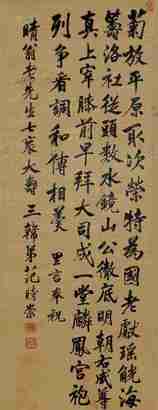 菊放平原取次榮特爲國老獻瑤觥海
籌洛社從頭數水鏡山公徹底明朝右咸尊
真上宰膝前早拜大司成一堂麟鳳宮袍
列爭看調和傅相羹 里言奉祝
晴翁老先生七袠大壽 三韓弟范時崇